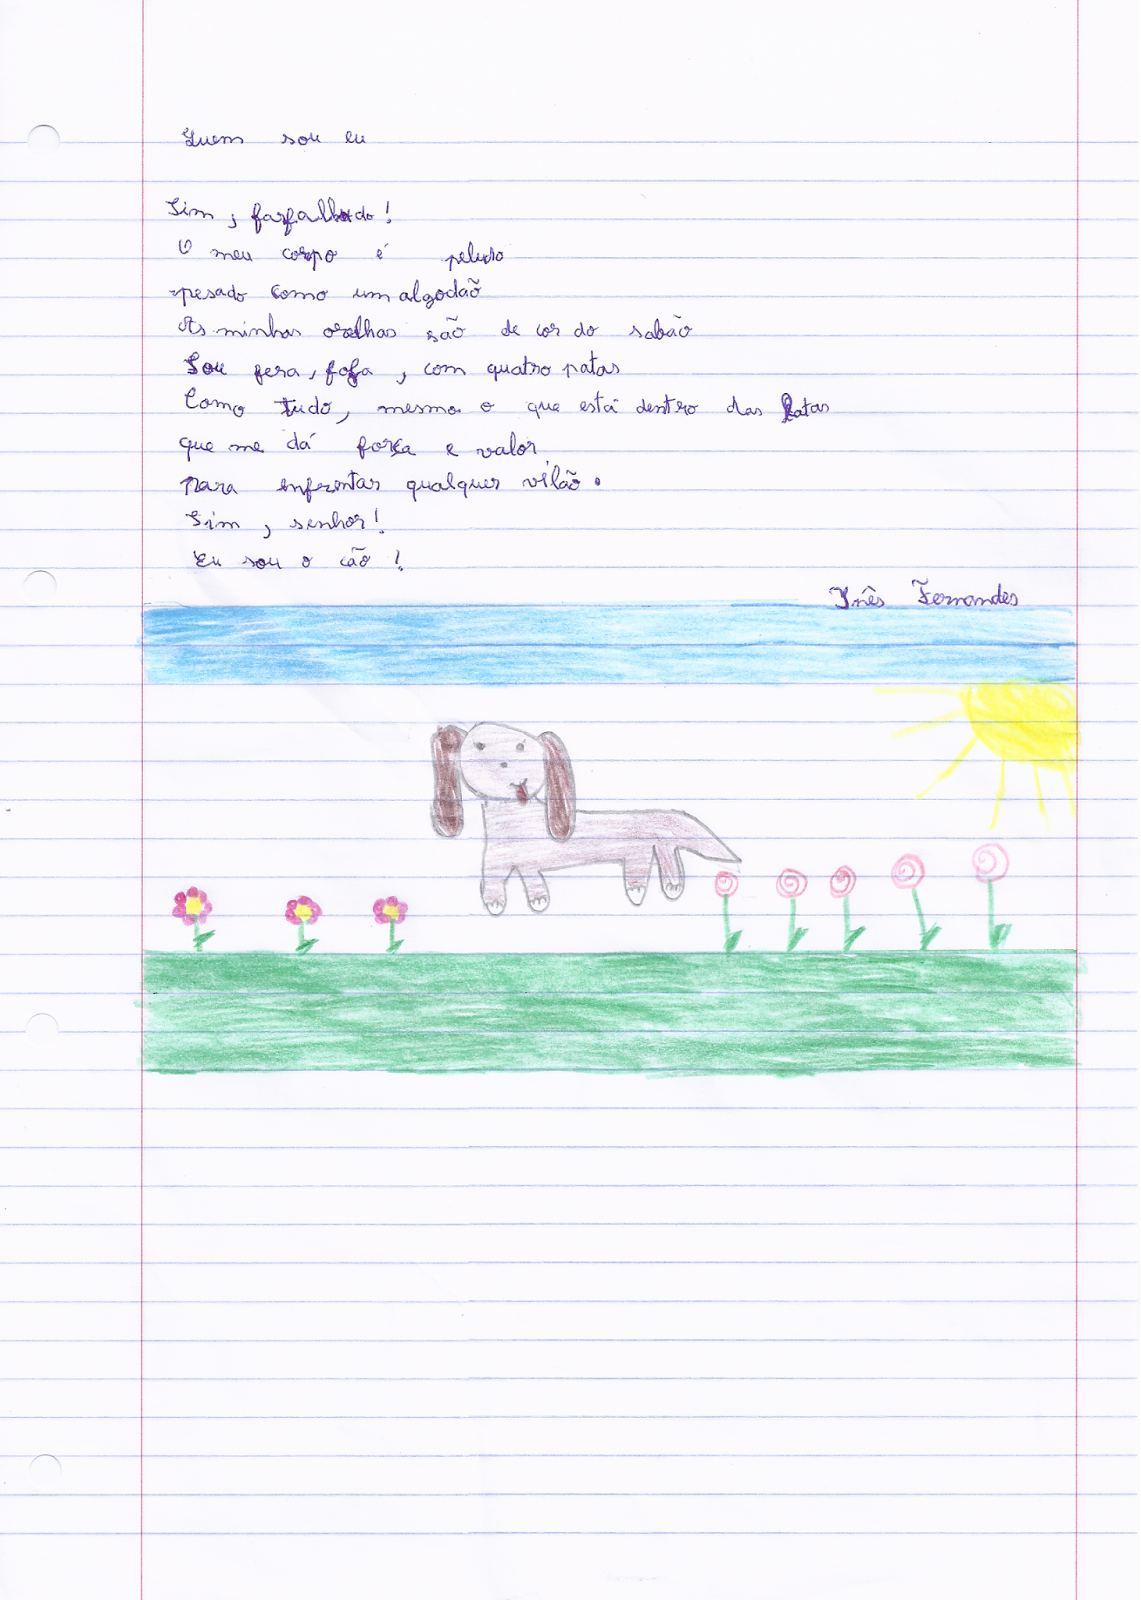 Quem sou eu
Sim, farfalhudo!
O meu corpo é peludo
pesado como um algodão
As minhas orelhas são de cor do sabão
Sou fera, fofa, com quatro patas
Como tudo, mesmo o que está dentro das latas
que me dá força e valor
para enfrentar qualquer vilão.
Sim, senhor!
Eu sou o cão!
Inês Fernandes